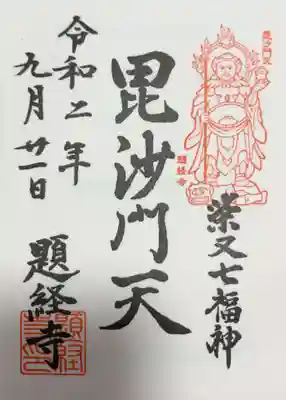 毘沙門天
題経寺
柴又七福神
毘沙門天
令和二年
九月廿一日
題経寺